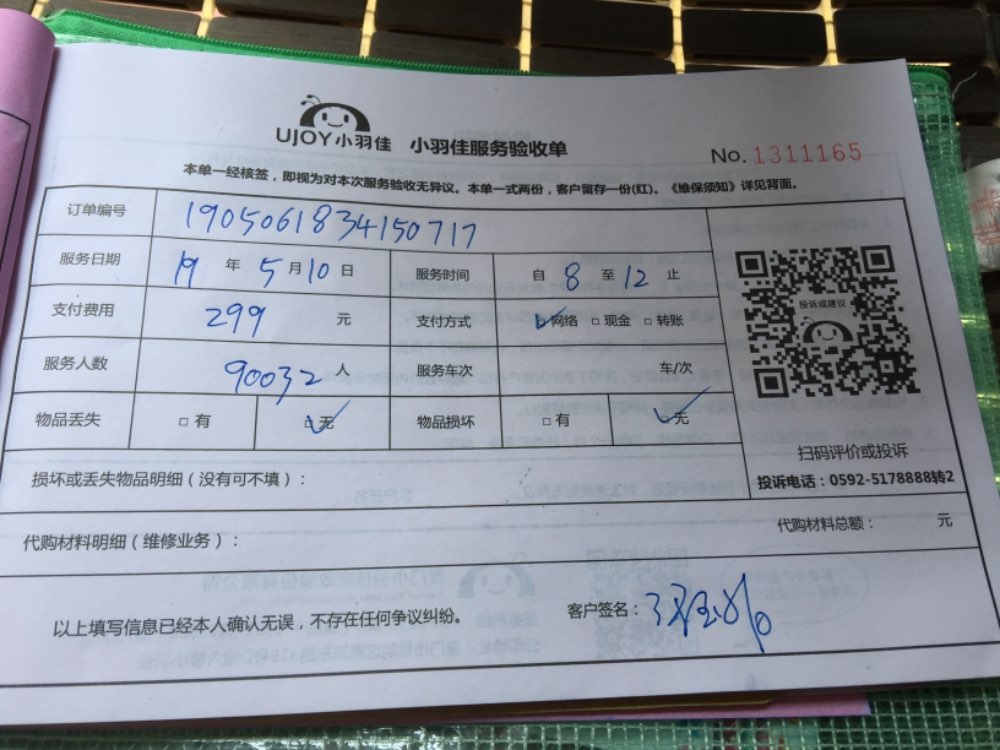 UJOY小羽佳 小羽佳服务验收单
No. 1311165
本单一经核签，即视为对本次服务验收无异议。本单一式两份，客户留存一份(红)。《维保须知》详见背面。
订单编号 1905061834150717
服务日期 19 年 5 月 10 日 服务时间 自 8 至 12 止
支付费用 299 元 支付方式 ☑网络 □现金 □转账
服务人数 90032 人 服务车次 车/次
物品丢失 □有 ☑无 物品损坏 □有 ☑无
投诉或建议
扫码评价或投诉
投诉电话：0592-5178888转2
损坏或丢失物品明细（没有可不填）：
代购材料明细（维修业务）：
代购材料总额： 元
以上填写信息已经本人确认无误，不存在任何争议纠纷。
客户签名：